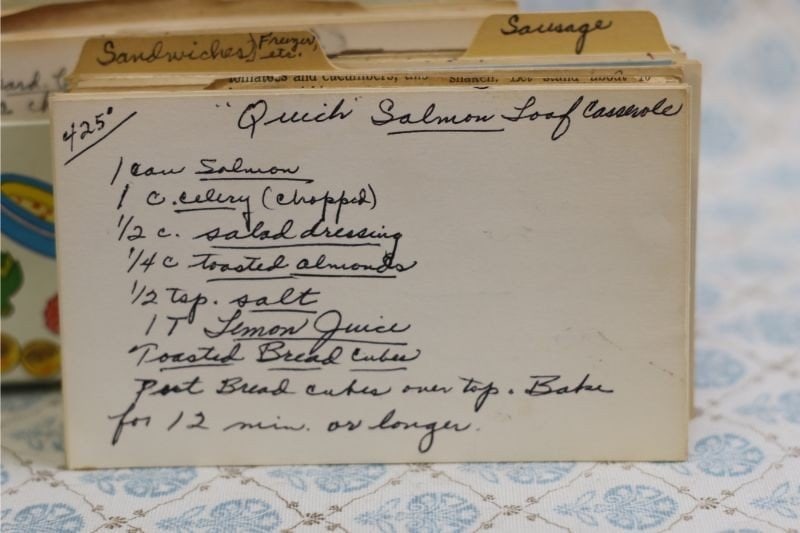 Sandwiches, Freezer, etc.
Sausage
tomatoes and cucumbers,
shaken. Let stand about
425°
"Quick" Salmon Loaf Casserole
1 can Salmon
1 c. celery (chopped)
1/2 c. salad dressing
1/4 c toasted almonds
1/2 tsp. salt
1 T Lemon Juice
Toasted Bread cubes
Put Bread cubes over top. Bake
for 12 min. or longer.